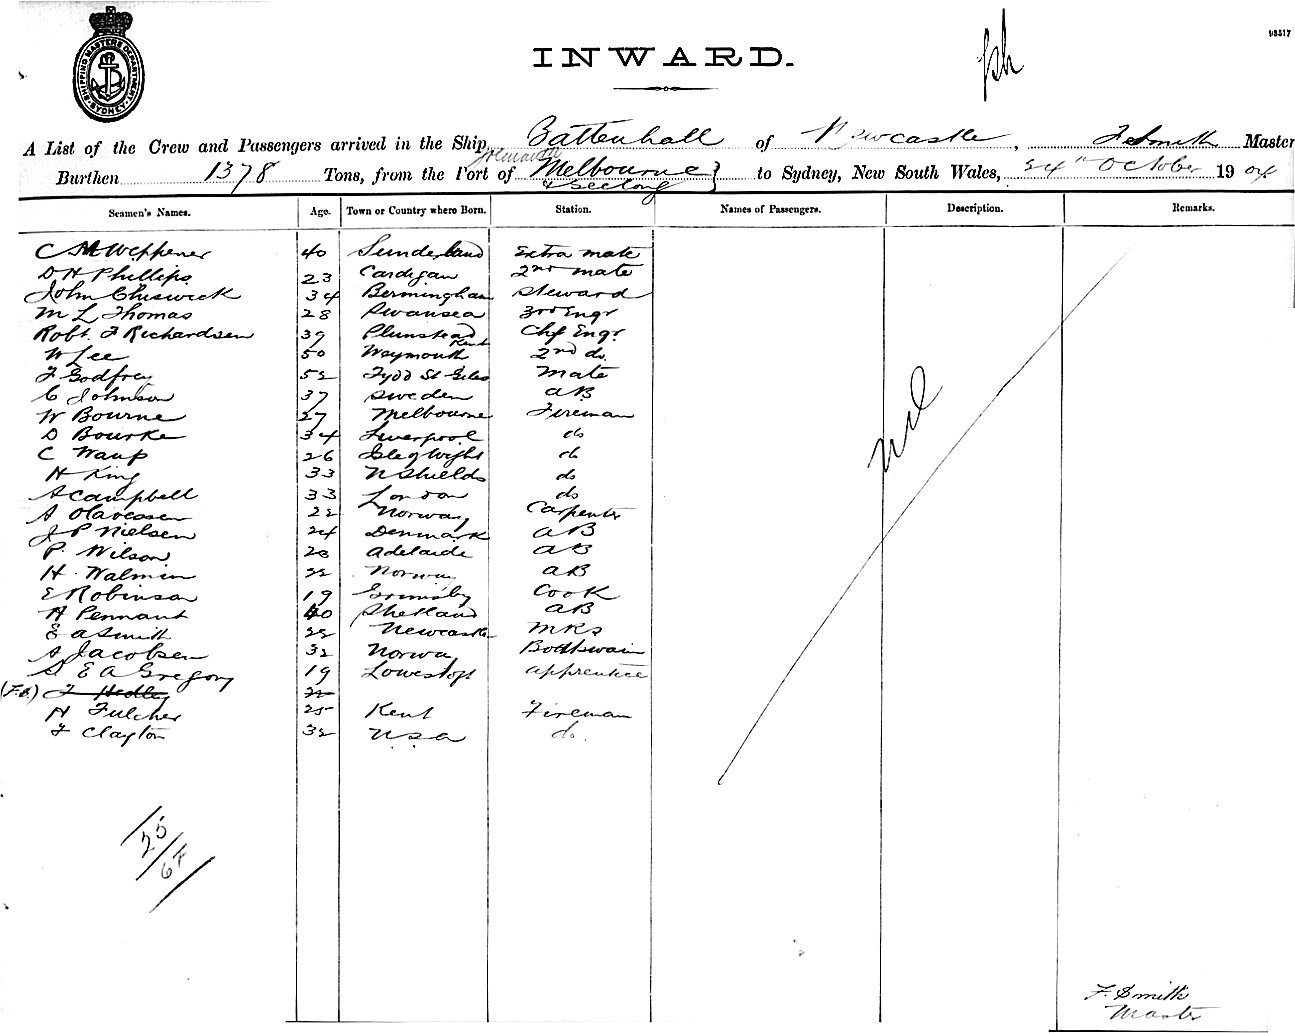 SHIPPING MASTERS DEPARTMENT SYDNEY
INWARD.
93517
A List of the Crew and Passengers arrived in the Ship Battenhall of Newcastle, F Smith Master
Burthen 1378 Tons, from the Port of Melbourne & Geelong } to Sydney, New South Wales, 24th October 1904
Seamen's Names. Age. Town or Country where Born. Station. Names of Passengers. Description. Remarks.
C M Weppener 40 Sunderland Extra mate
D H Phillips 23 Cardigan 2nd mate
John Chiswick 34 Bermingham Steward
M L Thomas 28 Swansea 3rd Engr
Robt. F Richardson 39 Plumstead Kent Chf Engr
W Lee 50 Weymouth 2nd do.
F Godfrey 52 Tydd St Giles Mate
C Johnson 37 Sweden AB
W Bourne 27 Melbourne Fireman
D Bourke 34 Liverpool do
C Waup 26 Isle of Wight do
H King 33 N Shields do
A Campbell 33 London do
A Olavessen 22 Norway Carpenter
J P Nielsen 24 Denmark AB
P. Wilson 28 Adelaide AB
H. Walmin 22 Norway AB
E Robinson 19 Grimsby Cook
A Pennant 40 Shetland AB
E A Smith 22 Newcastle MRS
A Jacobsen 32 Norway Boatswain
S E A Gregory 19 Lowestoft apprentice
(F.S.) J Hedley 22
H Fulcher 25 Kent Fireman
F Clayton 32 U.S.A do.
nil
25
67
F. Smith
Master